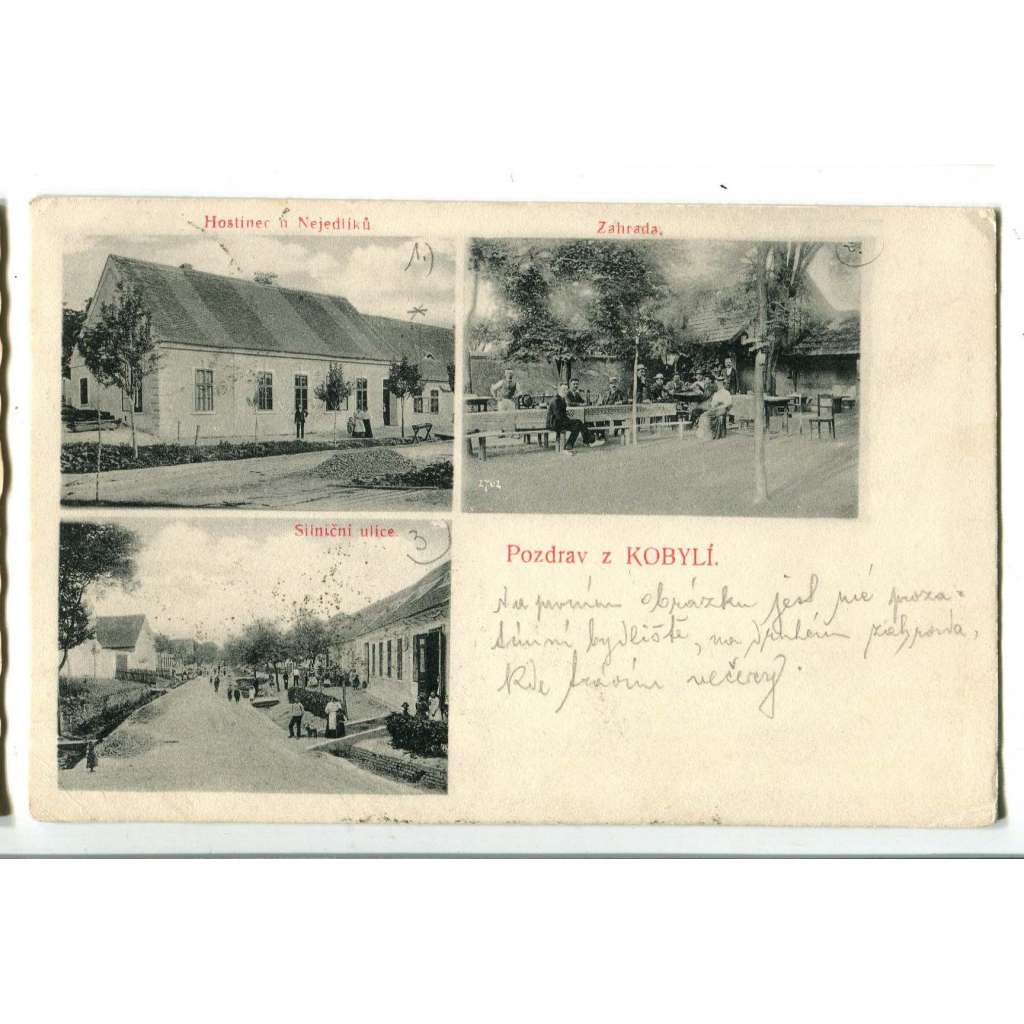 Hostinec u Nejedlíků
1.)
Zahrada.
2702
Silniční ulice.
3)
Pozdrav z KOBYLÍ.
Na prvním obrázku jest mé proza-
tímní bydliště, na druhém zahrada,
kde trávím večery.